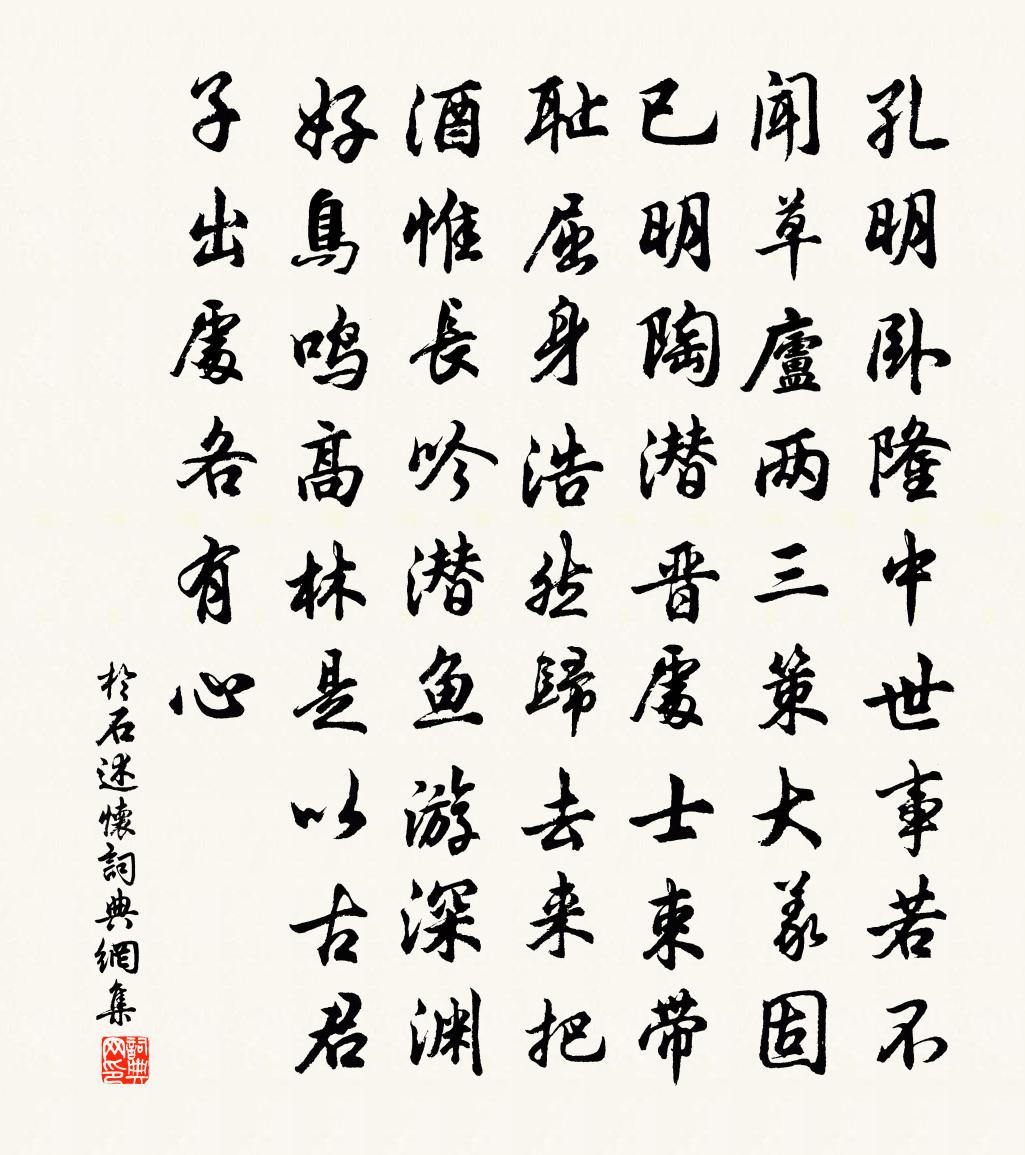 孔明卧隆中世事若不
闻草廬两三策大義固
已明陶潜晋處士束帶
耻屈身浩然歸去来把
酒惟長吟潜鱼游深渊
好鳥鸣高林是以古君
子出處各有心
於石述懷詞典網集
詞典网印